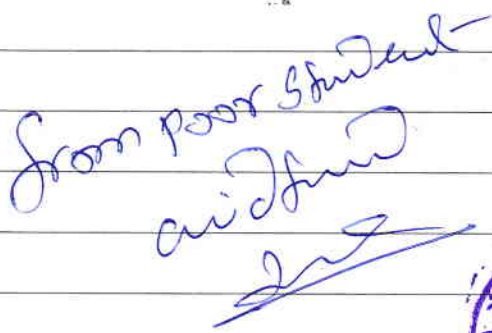 from poor student
aid fund